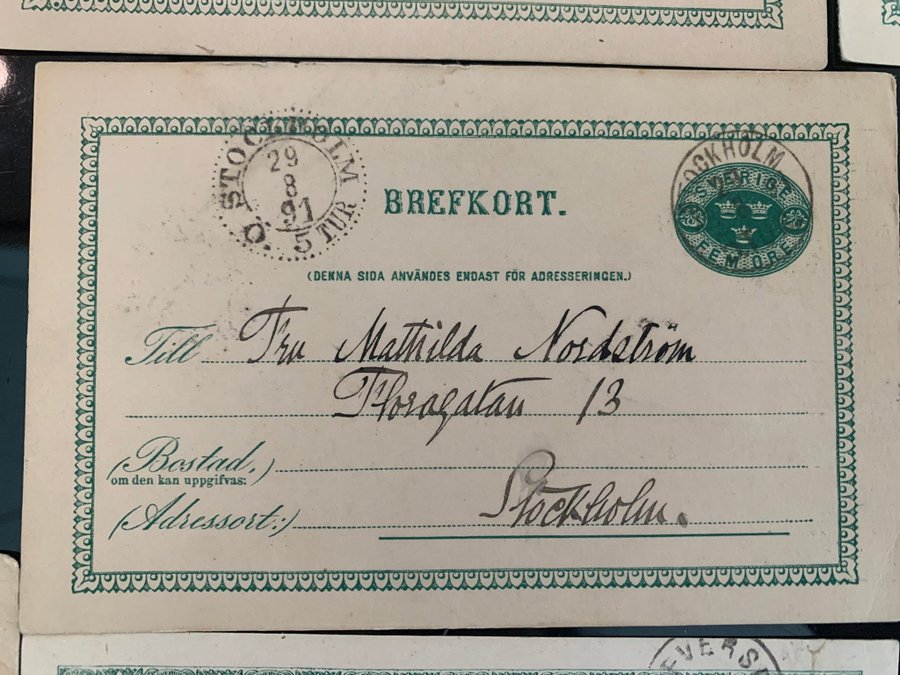 STOCKHOLM
29
8
91
Ö. 5 TUR
BREFKORT.
STOCKHOLM
SVERIGE
FEM ÖRE
(DENNA SIDA ANVÄNDES ENDAST FÖR ADRESSERINGEN.)
Till Fru Mathilda Nordström
Floragatan 13
(Bostad,)
om den kan uppgifvas:
Stockholm.
(Adressort:)